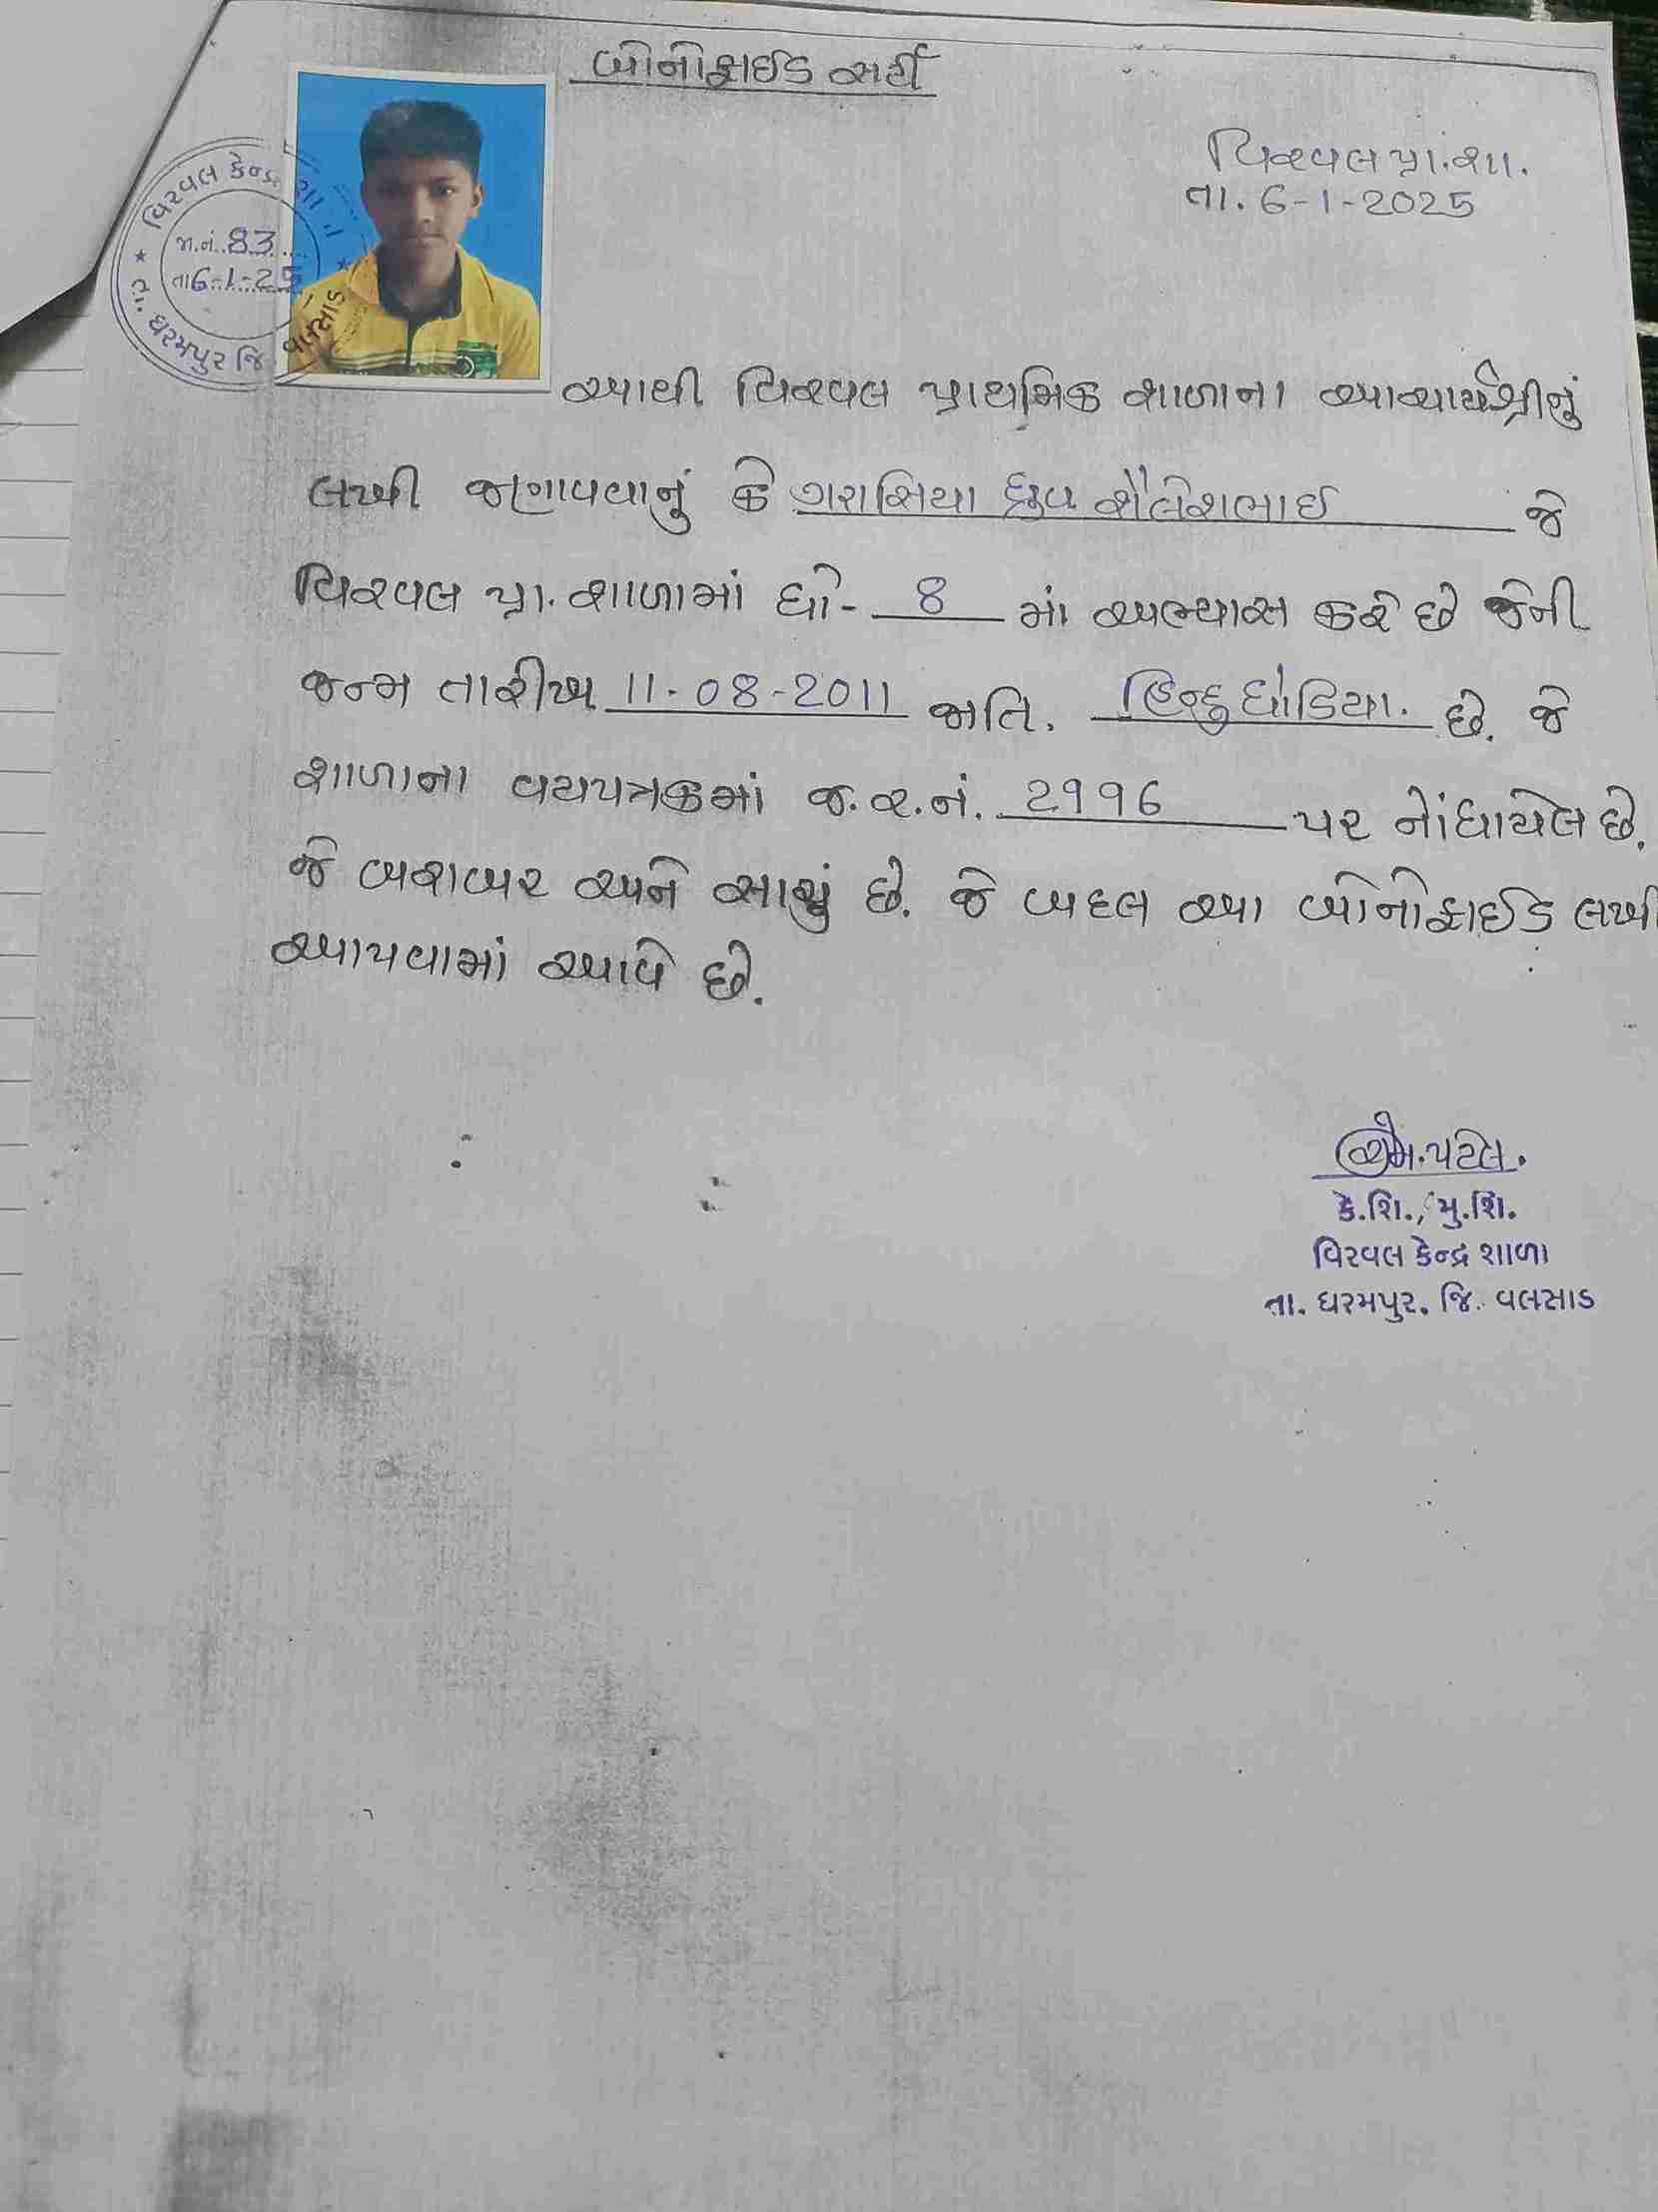 બોનોફાઈડ સર્ટી
વિરવલ પ્રા.શા.
તા. 6-1-2025
વિરવલ કેન્દ્ર શા
જા.નં. 83
તા 6-1-25
તા. ધરમપુર જિ. વલસાડ
આથી વિરવલ પ્રાથમિક શાળાના આચાર્યશ્રીનું
લખી જણાવવાનું કે ગરાસિયા ધ્રુવ શૈલેશભાઈ જે
વિરવલ પ્રા. શાળામાં ધો- 8 માં અભ્યાસ કરે છે જેની
જન્મ તારીખ 11-08-2011 જાતિ. હિન્દુ ધોડિયા. છે. જે
શાળાના વયપત્રકમાં જ.ર.નં. 2996 પર નોંધાયેલ છે.
જે બરાબર અને સાચું છે. જે બદલ આ બોનોફાઈડ લખી
આપવામાં આવે છે.
એમ.પટેલ.
કે.શિ., મુ.શિ.
વિરવલ કેન્દ્ર શાળા
તા. ધરમપુર. જિ. વલસાડ